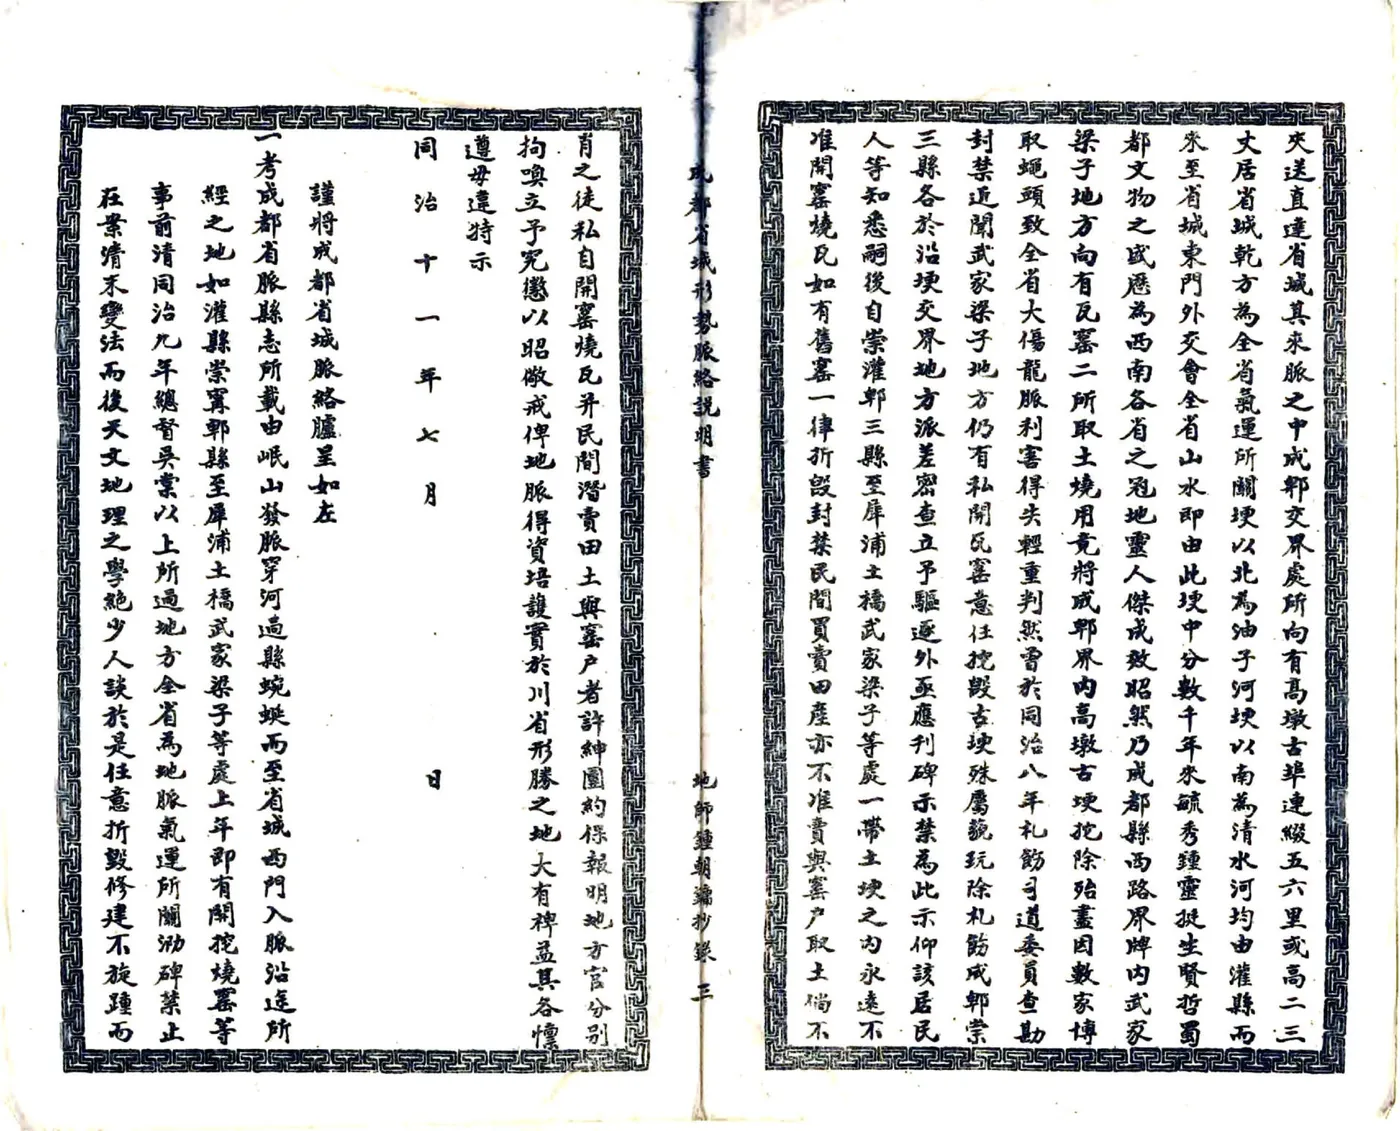 夾送直達省城其來脈之中成郫交界處所向有高墩古埠連綴五六里或高二三
丈居省城乾方為全省氣運所關埂以北為油子河埂以南為清水河均由灌縣而
來至省城東門外交會全省山水即由此埂中分數千年來毓秀鍾靈挺生賢哲蜀
都文物之盛歷為西南各省之冠地靈人傑成效昭然乃成都縣西路界牌內武家
梁子地方向有瓦窰二所取土燒用竟將成郫界內高墩古埂挖除殆盡因數家博
取蠅頭致全省大傷龍脈利害得失輕重判然曾於同治八年札飭司道委員查勘
封禁近聞武家梁子地方仍有私開瓦窰意任挖毀古埂殊屬藐玩除札飭成郫崇
三縣各於沿埂交界地方派差密查立予驅逐外亟應刊碑示禁為此示仰該居民
人等知悉嗣後自崇灌郫三縣至犀浦土橋武家梁子等處一帶土埂之內永遠不
准開窰燒瓦如有舊窰一律折毀封禁民間買賣田產亦不准賣與窰户取土倘不
成都省城形勢脈絡說明書
地師鍾朝煸抄錄 三
肖之徒私自開窰燒瓦并民間潛賣田土與窰户者許紳團約保報明地方官分別
拘喚立予究懲以昭儆戒俾地脈得資培護實於川省形勝之地大有裨益其各懍
遵毋違特示
同治十一年七月 日
謹將成都省城脈絡臚呈如左
一考成都省脈縣志所載由岷山發脈穿河過縣蜿蜒而至省城西門入脈沿途所
經之地如灌縣崇寗郫縣至犀浦土橋武家梁子等處上年即有開挖燒窰等
事前清同治九年總督吳棠以上所過地方全省為地脈氣運所關泐碑禁止
在案清末變法而後天文地理之學絕少人談於是任意折毀修建不旋踵而